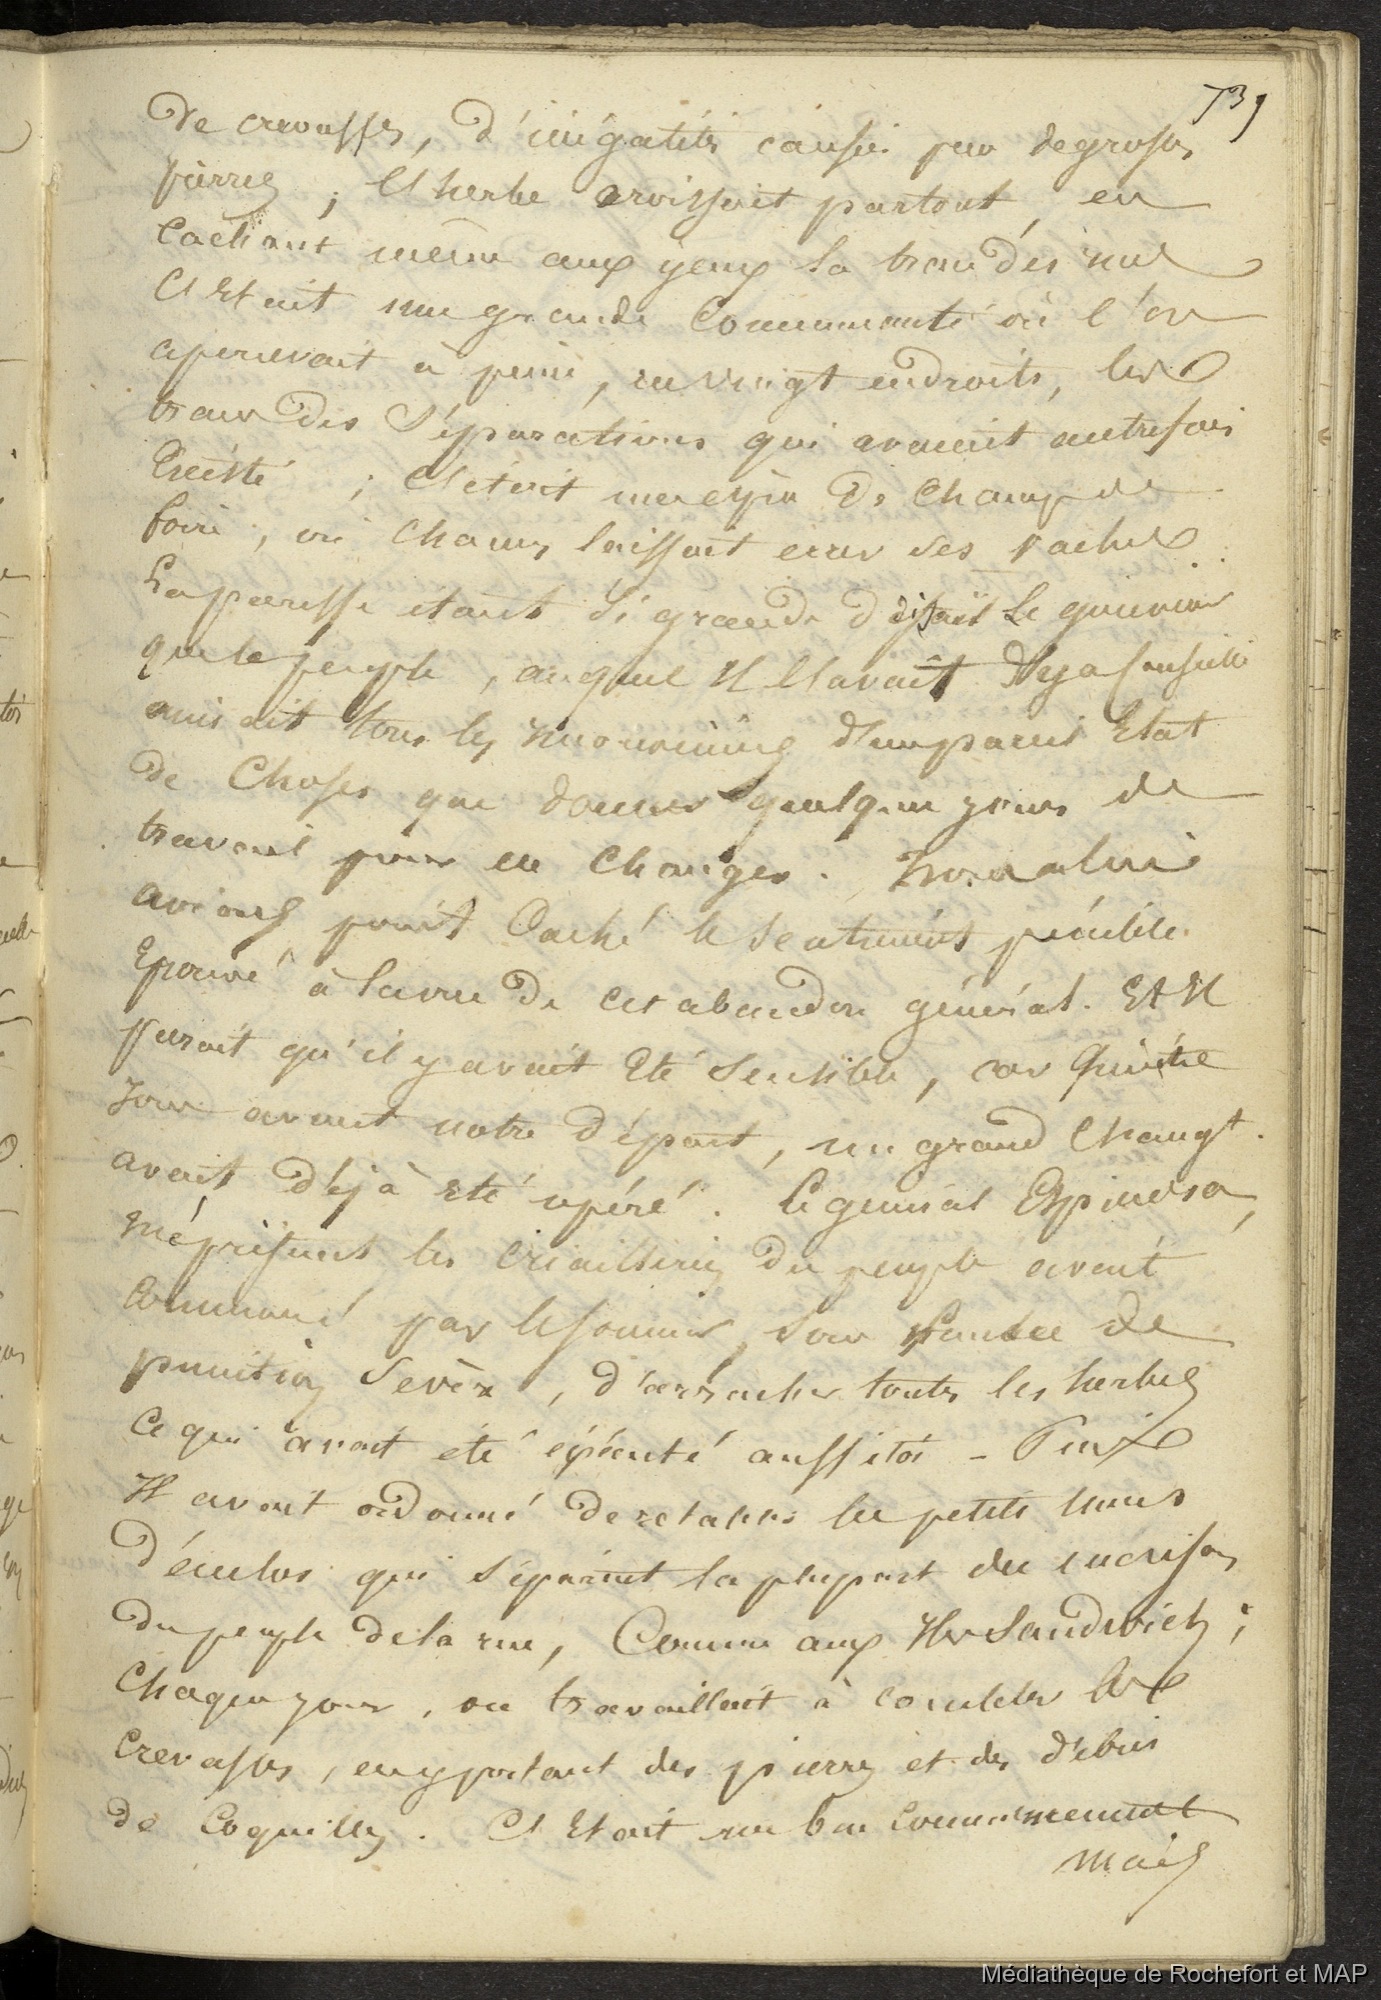 739
de crevasses, d'inégalités causées par de grosses
pierres ; l'herbe croissait partout, en
cachant même aux yeux la trace des rues
C'était une grande communauté où l'on
apercevait à peine, en vingt endroits, les
traces des séparations qui avaient autrefois
existé ; c'était une espèce de champ de
foire, où chacun laissait errer ses vaches.
La paresse étant si grande disait le gouverneur
que le peuple, auquel il l'avait déjà conseillé
aimait tous les inconvénients d'un pareil Etat
de choses que donner quelques jours de
travail pour en changer. Nous lui
avions point caché le sentiment pénible
éprouvé à la vue de cet abandon général. Et il
parait qu'il y avait été sensible, car quinze
jours avant notre départ, un grand changt.
avait déjà été opéré. Le général Espinosa,
méprisant les criailleries du peuple avait
commencé par le sommer, sous peine de
punition sévère, d'arracher toutes les herbes
ce qui avait été éxécuté aussitôt - Puis
Il avait ordonné de rétablir les petits murs
d'enclos qui séparent la plupart des maisons
du peuple de la rue, Comme aux Iles Sandwich ;
Chaque jour, on travaillait à combler les
crevasses, en y portant des pierres et des débris
de Coquilles. C'Etait un bon Commencement
mais
Médiathèque de Rochefort et MAP